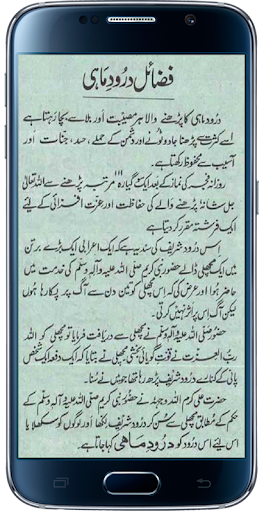 فضائل درُود ماہی
درُود ماہی کا پڑھنے والا ہر مصیبت اور بلا سے بچا رہتا ہے
اسے کثرت سے پڑھنا جادو ٹونے اور دشمن کے حملے، حسد، جنات اور
آسیب سے محفوظ رکھتا ہے۔
روزانہ فجر کی نماز کے بعد ایک گیارہ مرتبہ پڑھنے سے اللہ تعالیٰ
جل شانہٗ پڑھنے والے کی حفاظت اور عزت افزائی کے لیے
ایک فرشتہ مقرر کر دیتا ہے۔
اس درود شریف کی سند یہ ہے کہ ایک اعرابی ایک بڑے برتن
میں ایک مچھلی ڈالے حضور نبی کریم صلی اللہ علیہ وآلہ وسلم کی خدمت میں
حاضر ہوا اور عرض کی کہ اس مچھلی کو تین دن سے آگ پر پکا رہا ہوں
لیکن آگ اس پر اثر نہیں کرتی۔
حضور صلی اللہ علیہ وآلہ وسلم نے مچھلی سے دریافت فرمایا تو مچھلی کو اللہ
ربُّ العزت نے قوتِ گویائی بخشی مچھلی نے بتایا کہ ایک دفعہ ایک شخص
پانی کے کنارے درُود شریف پڑھ رہا تھا جو میں نے سُنا۔
حضرت علی کرم اللہ وجہہ نے حضور نبی کریم صلی اللہ علیہ وآلہ وسلم کے
حکم کے مُطابق مچھلی سے سُن کر درُود شریف لکھا اور لوگوں کو سکھلایا
اس لیے اس درُود کو درُودِ ماہی کہا جاتا ہے۔